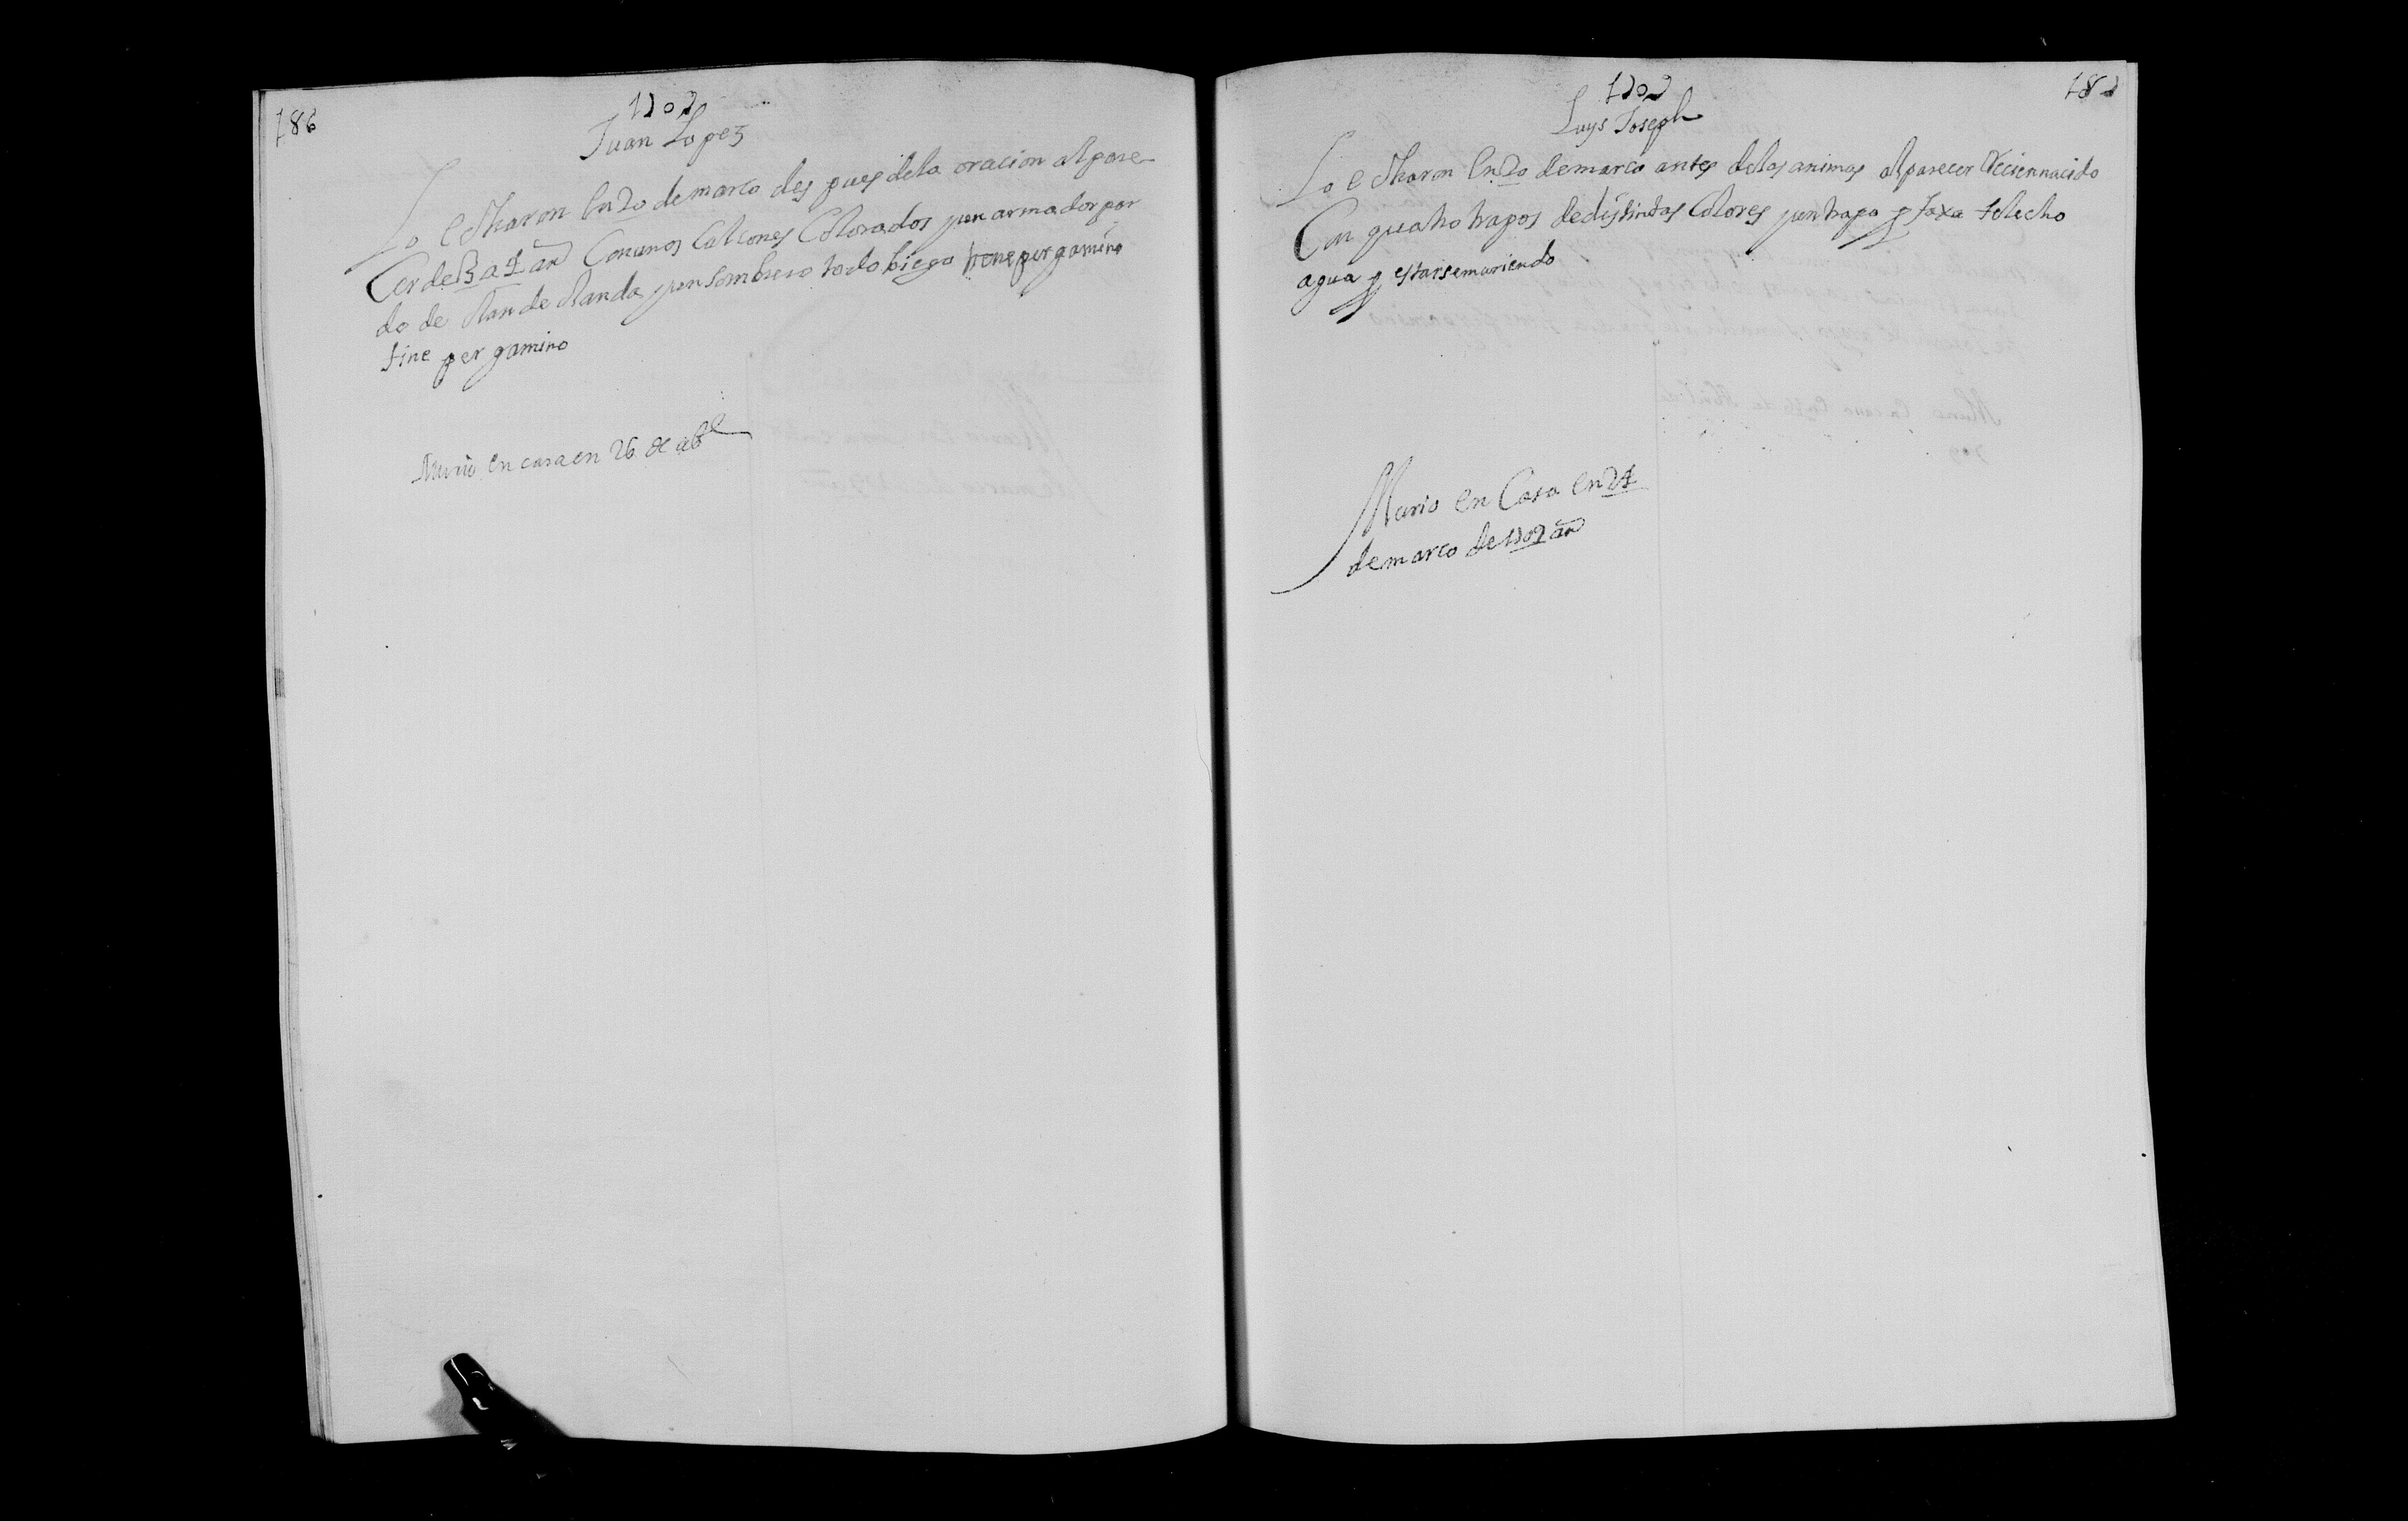 186
1702
Juan Lopez
Lo echaron en 20 de marco des pues de la oracion al pare-
cer de 3 a 4 an Con unos Calcones Colorados y un armador par
do de olan de olanda y un sombrero todo biego tiene pergamino
tine per gamino
Murio en casa en 26 de abl
187
1702
Luys Joseph
Lo echaron en 20 de marco antes de las animas al parecer Recien nacido
Con quatro trapos de distintas Colores y un trapo p faxa se le echo
agua p estarse muriendo
Murio en Casa en 24
de marco de 1702 an